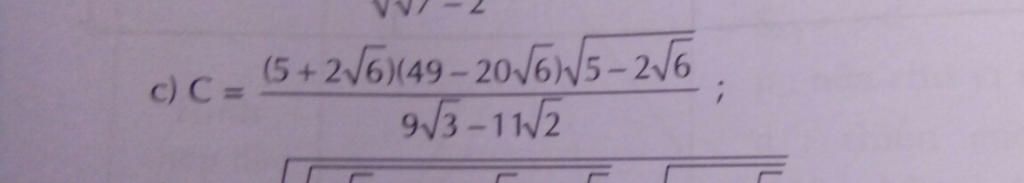 √√7 – 2
c) C = (5 + 2√6)(49 – 20√6)√(5 – 2√6) / (9√3 – 11√2) ;